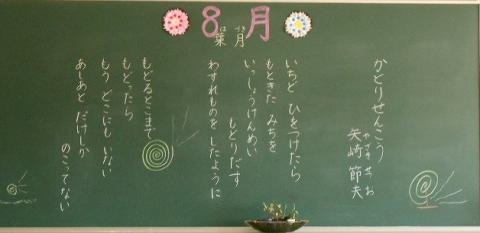 8月
葉月
はづき
かとりせんこう
矢崎節夫
やざきせつお
いちど ひをつけたら
もときた みちを
いっしょうけんめい
もどりだす
わすれものを したように
もどるとこまで
もどったら
もう どこにも いない
あしあと だけしか
のこってない